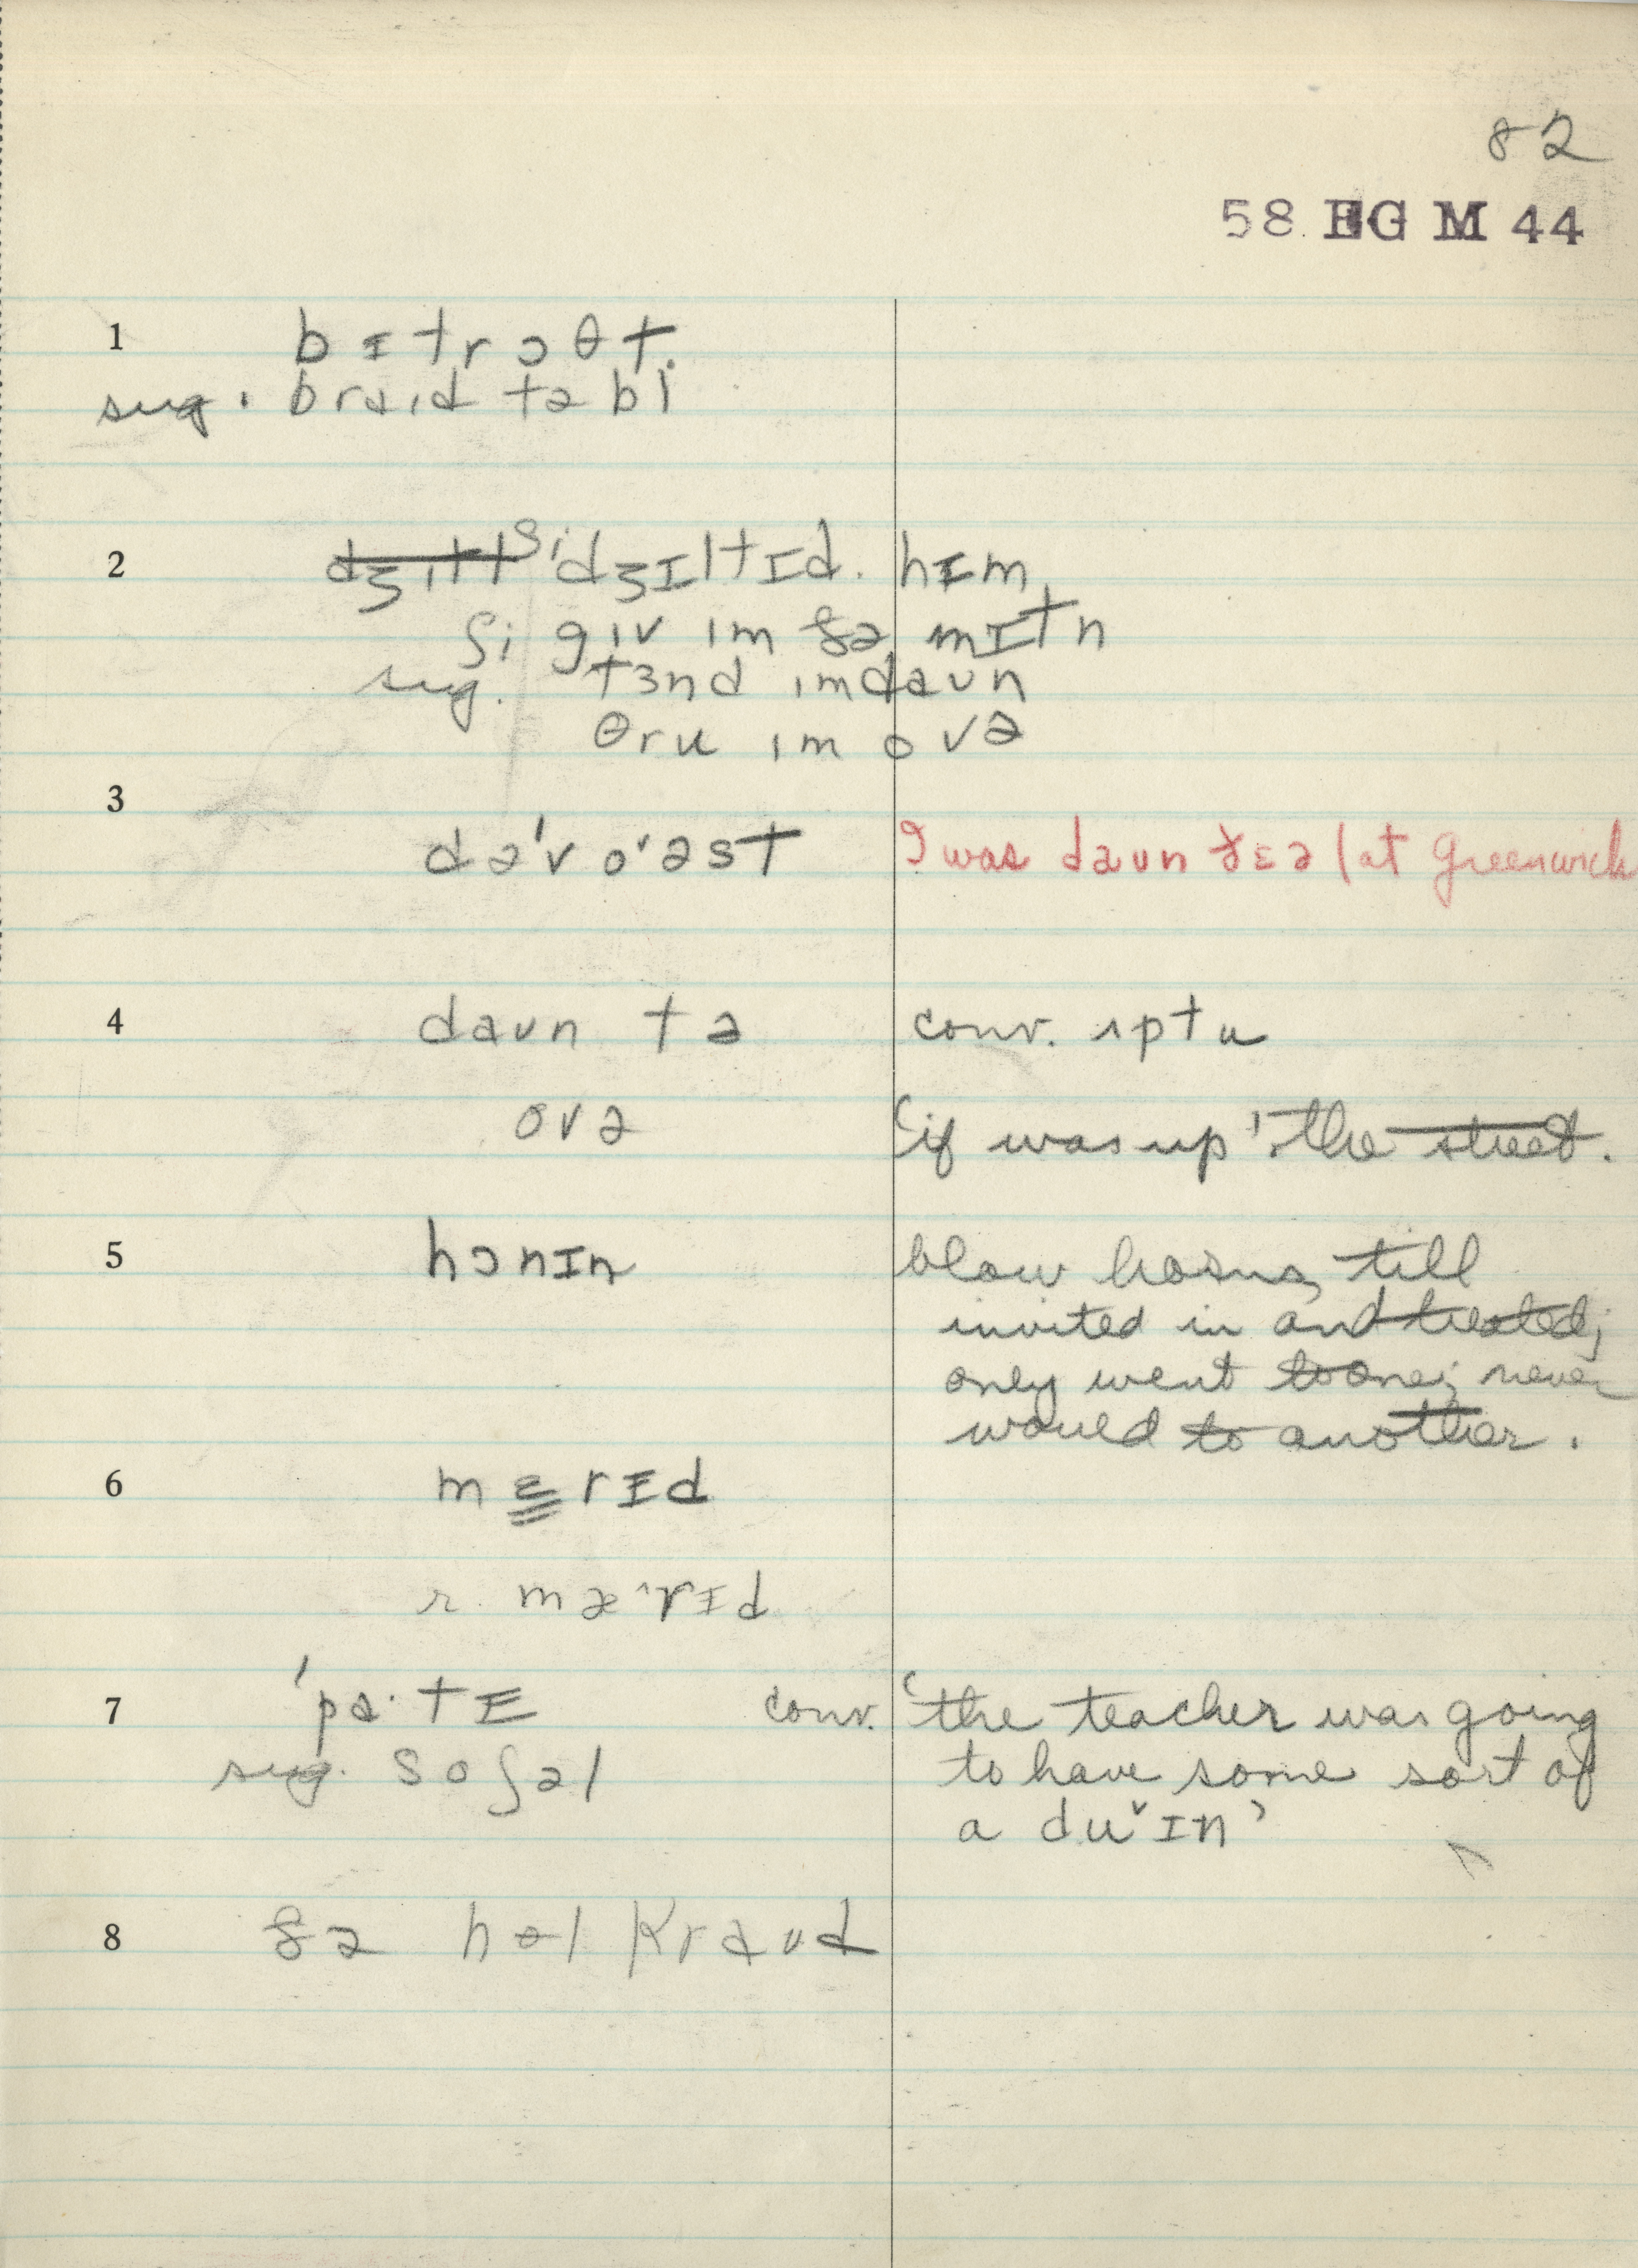 82
58 EG M 44
1 bɪtrɔθt.
sug. braɪd tə bi
2 ʃi dʒɪltɪd. hɪm
ʃi gɪv ɪm ðə mɪtn
sug. tɜnd ɪm daun
θru ɪm ovə
3
də'v o'əst I was daun ðɛə (at Greenwich
4 daun tə conv. ʌptu
ovə 'if was up' the street.
5 hɔnɪn blow horns, till
invited in and treated;
only went to one; never
would to another.
6 mɛrɪd
r. mæ^rɪd
7 'pa·tɪ conv. 'the teacher was going
sug. soʃəl to have some sort of
a duˇɪn'
8 ðə hɵl kraud